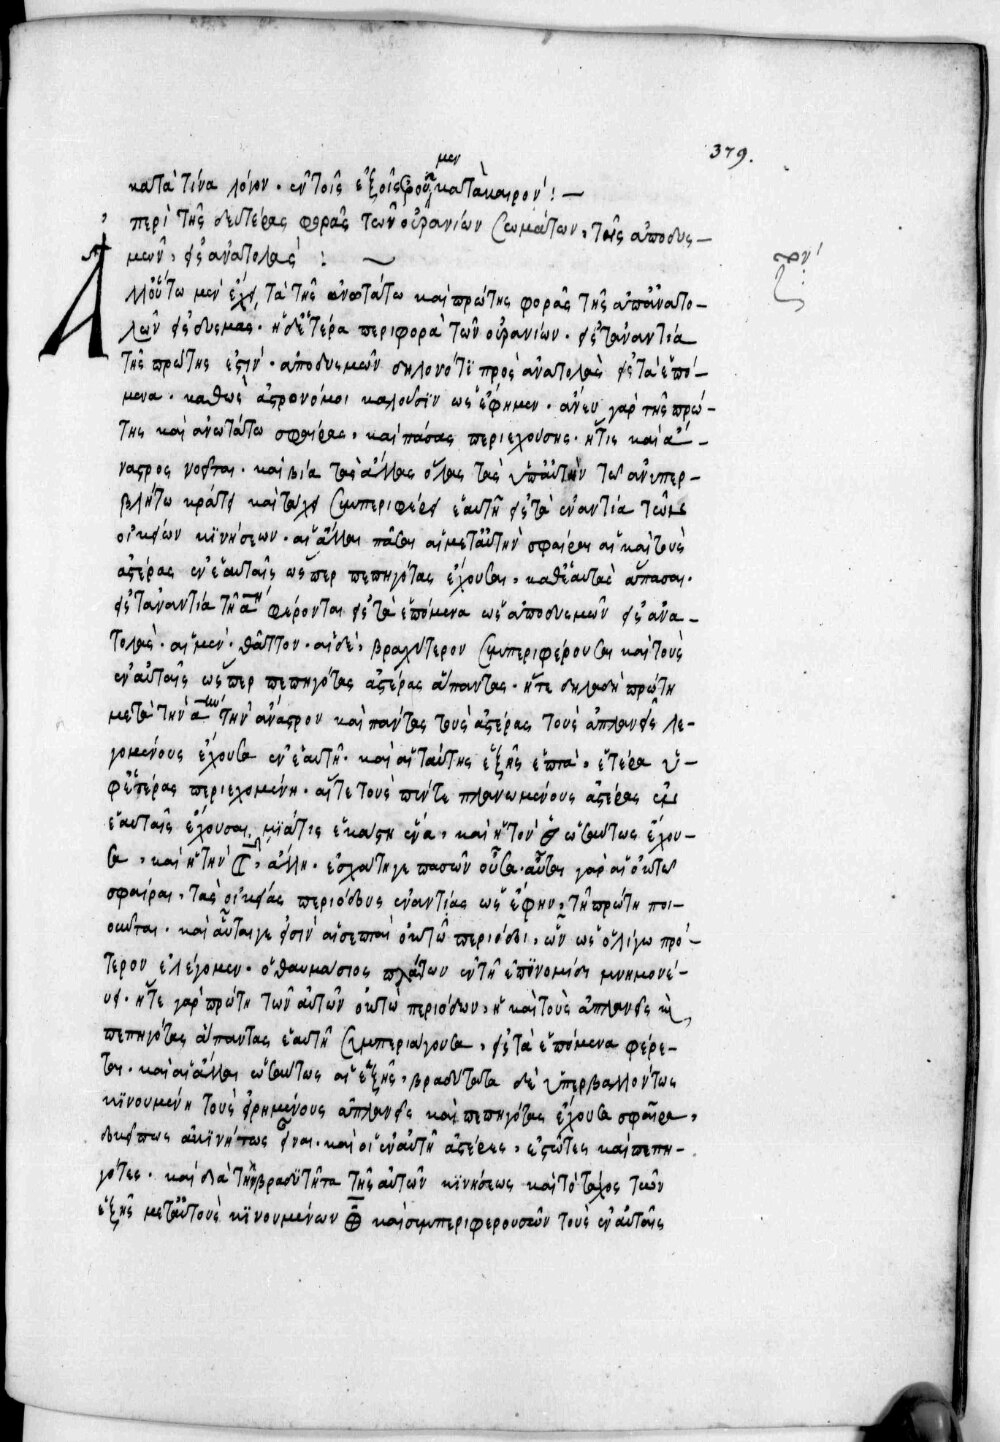 379.
κατὰ τίνα λόγον· ἐν τοῖς ἑξῆς ἐροῦμεν κατὰ καιρόν:—
περὶ τῆς δευτέρας φορᾶς τῶν οὐρανίων σωμάτων, τῆς ἀπὸ δυσ—
μῶν, εἰς ἀνατολάς :~
Ἀλλ' οὕτω μὲν ἔχει τὰ τῆς ἀνωτάτω καὶ πρώτης φορᾶς τῆς ἀπ' ἀνατο—
λῶν εἰς δυσμάς· ἡ δευτέρα περιφορὰ τῶν οὐρανίων· εἰς τἀναντία
τῆς πρώτης ἐστίν· ἀπὸ δυσμῶν δηλονότι πρὸς ἀνατολὰς εἰς τὰ ἑπό—
μενα· καθὼς ἀστρονόμοι καλοῦσιν ὡς ἔφημεν· ἄνευ γὰρ τῆς πρώ—
της καὶ ἀνωτάτω σφαίρας, καὶ πάσας περιεχούσης· ἥτις καὶ ἄ—
ναστρος νοεῖται· καὶ βίᾳ τὰς ἄλλας ὅλας τὰς ὑπ' αὐτὴν τῷ ἀνυπερ—
βλήτῳ κράτει καὶ τάχει συμπεριφέρει ἑαυτῇ εἰς τὰ ἐναντία τῶν
οἰκείων κινήσεων· αἱ ἄλλαι πᾶσαι αἱ μετ' αὐτὴν σφαῖραι αἳ καὶ τοὺς
ἀστέρας ἐν ἑαυταῖς ὥσπερ πεπηγότας ἔχουσαι, καθ' ἑαυτὰς ἅπασαι·
εἰς τἀναντία τῇ αη φέρονται εἰς τὰ ἑπόμενα ὡς ἀπὸ δυσμῶν εἰς ἀνα—
τολάς· αἱ μὲν, θᾶττον· αἱ δὲ, βραχύτερον συμπεριφέρουσαι καὶ τοὺς
ἐν αὐταῖς ὥσπερ πεπηγότας ἀστέρας ἅπαντας· ἥτε δηλαδὴ πρώτη
μετὰ τὴν αην τὴν ἄναστρον καὶ πάντας τοὺς ἀστέρας τοὺς ἀπλανεῖς λε—
γομένους ἔχουσα ἐν ἑαυτῇ· καὶ αἱ ταύτης ἑξῆς ἑπτὰ, ἑτέρα ὑ—
φ' ἑτέρας περιεχομένη· αἵτε τοὺς πέντε πλανωμένους ἀστέρας ἐν
ἑαυταῖς ἔχουσαι, μία τις ἑκάστη ἕνα, καὶ ἡ τὸν ☉ ὡσαύτως ἔχου—
σα, καὶ ἡ τὴν ☾, ἄλλη· ἐσχάτη γε πασῶν οὖσα· αὗται γὰρ αἱ ὀκτὼ
σφαῖραι, τὰς οἰκείας περιόδους ἐναντίας ὡς ἔφην, τῇ πρώτῃ ποι—
οῦνται· καὶ αὗταί γε εἰσὶν αἱ σεπταὶ ὀκτὼ περίοδοι, ὧν ὡς ὀλίγῳ πρό—
τερον ἐλέγομεν· ὁ θαυμάσιος πλάτων ἐν τῇ ἐπινομίδι μνημονεύ—
ει· ἥτε γὰρ πρώτη τῶν αὐτῶν ὀκτὼ περιόδων, ἡ καὶ τοὺς ἀπλανεῖς καὶ
πεπηγότας ἅπαντας ἑαυτῇ συμπεριάγουσα, εἰς τὰ ἑπόμενα φέρε—
ται· καὶ αἱ ἄλλαι ὡσαύτως αἱ ἑξῆς, βραδύτατα δὲ ὑπερβαλλόντως
κινουμένη τοὺς εἰρημένους ἀπλανεῖς καὶ πεπηγότας ἔχουσα σφαῖρα,
δοκεῖ πως ἀκινήτως εἶναι· καὶ οἱ ἐν αὐτῇ ἀστέρες, ἑστῶτες καὶ πεπη—
γότες· καὶ διὰ τὴν βραδυτῆτα τῆς αὐτῶν κινήσεως καὶ τὸ τάχος τῶν
ἑξῆς μετ' αὐτοὺς κινουμένων καὶ συμπεριφερουσῶν τοὺς ἐν αὐταῖς